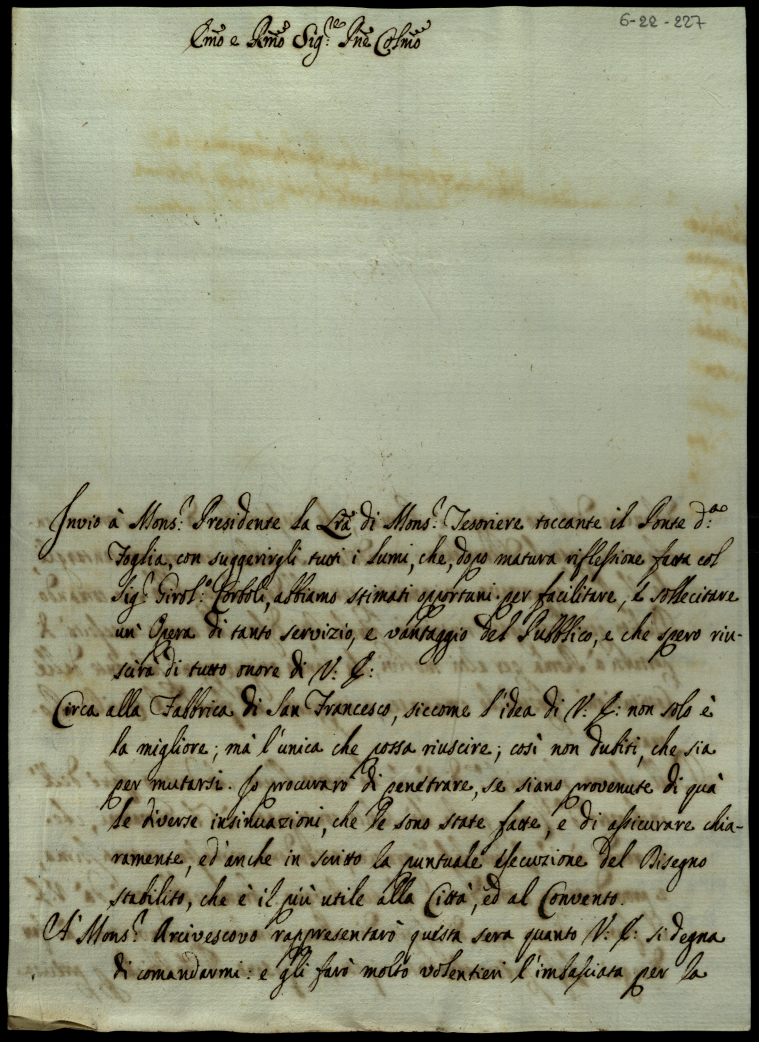 6-22-227
Emo e Rmo Sig.re Pne Colmo
Invio à Mons.r Presidente la Lra di Mons.r Tesoriere toccante il Ponte d.a
Foglia, con suggerirgli tutti i lumi, che, dopo matura riflessione fatta col
Sig.r Girol.o Corboli, abbiamo stimati opportuni per facilitare, e sollecitare
un' Opera di tanto servizio, e vantaggio del Pubblico, e che spero riu-
scirà di tutto onore di V: E:
Circa alla Fabbrica di San Francesco, siccome l'idea di V: E: non solo è
la migliore; mà l'unica che possa riuscire; così non dubiti, che sia
per mutarsi. Io procurarò di penetrare, se siano provenute di quà
le diverse insinuazioni, che le sono state fatte, e di assicurare chia-
ramente, ed'anche in scritto la puntuale esecuzione del Disegno
stabilito, che è il più utile alla Città, ed al Convento.
A' Mons.r Arcivescovo rappresentarò questa sera quanto V: E: si degna
di comandarmi: e gli farò molto volentieri l'imbasciata per la